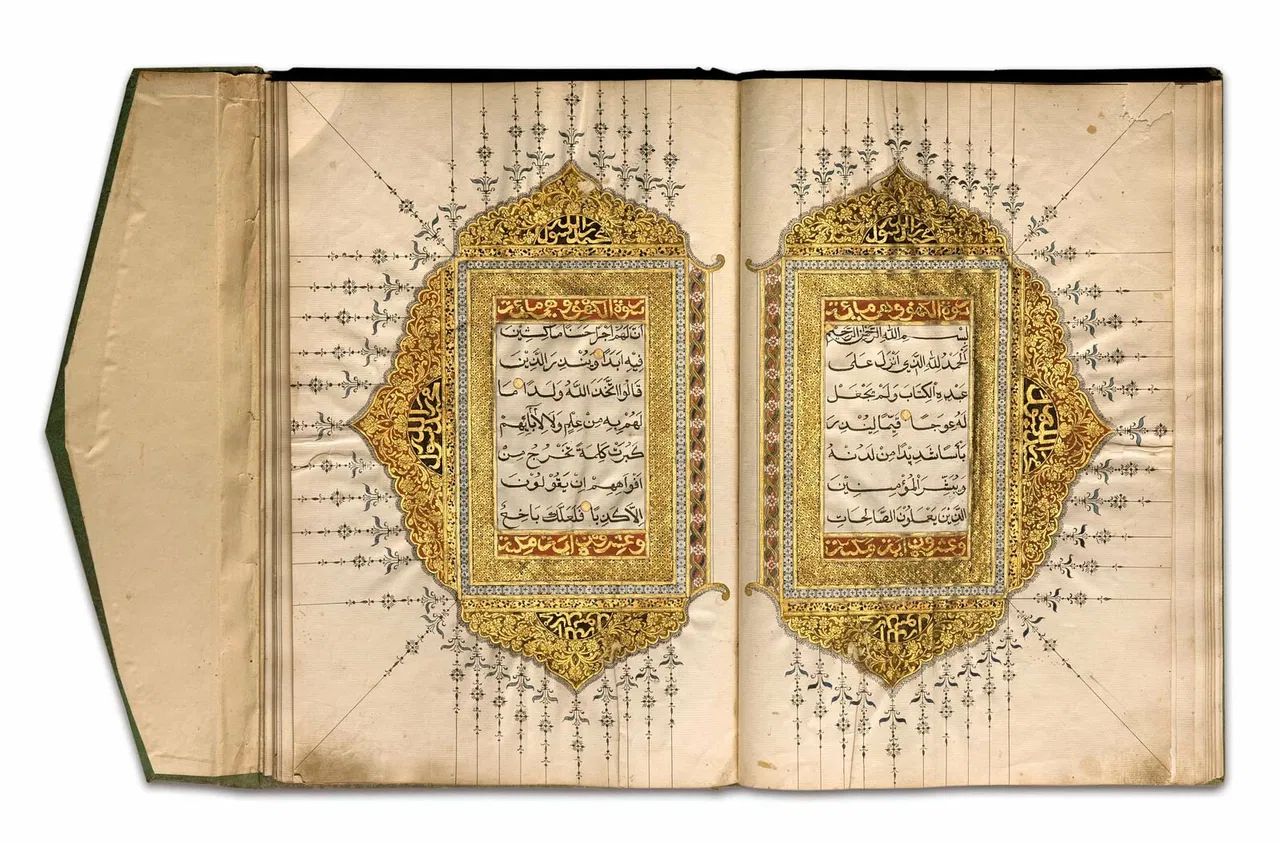 سورة الكهف وهي مائة
بسم الله الرحمن الرحيم
اَلْحَمْدُ لِلّٰهِ الَّذِي اَنْزَلَ عَلَى
عَبْدِهِ الْكِتَابَ وَلَمْ يَجْعَلْ
لَهُ عِوَجًا قَيِّمًا لِيُنْذِرَ
بَأْسًا شَدِيدًا مِنْ لَدُنْهُ
وَيُبَشِّرَ الْمُؤْمِنِينَ
الَّذِينَ يَعْمَلُونَ الصَّالِحَاتِ
وعشرون اية مكية
سورة الكهف وهي مائة
اَنَّ لَهُمْ اَجْرًا حَسَنًا مَاكِثِينَ
فِيهِ اَبَدًا وَيُنْذِرَ الَّذِينَ
قَالُوا اتَّخَذَ اللّٰهُ وَلَدًا مَا
لَهُمْ بِهِ مِنْ عِلْمٍ وَلَا لِاٰبَائِهِمْ
كَبُرَتْ كَلِمَةً تَخْرُجُ مِنْ
اَفْوَاهِهِمْ اِنْ يَقُولُونَ
اِلَّا كَذِبًا فَلَعَلَّكَ بَاخِعٌ
وعشرون اية مكية